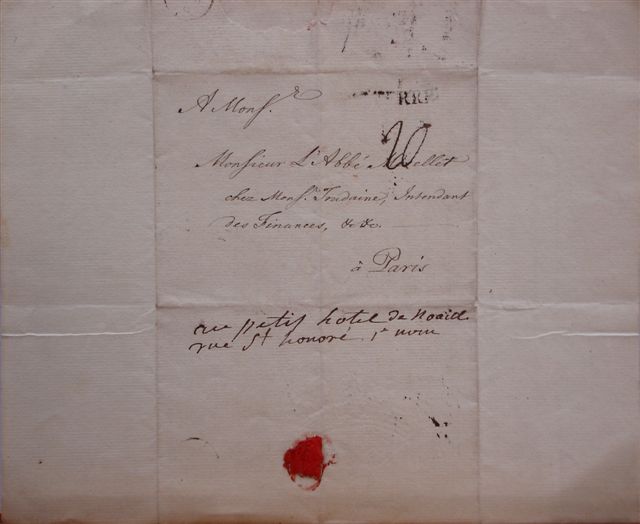 A Monsr
RRE
20
Monsieur L'Abbé M ellet
chez Monsr. Trudaine, Intendant
des Finances, &c &c.
à Paris
au petit hotel de Noaill
rue St honoré